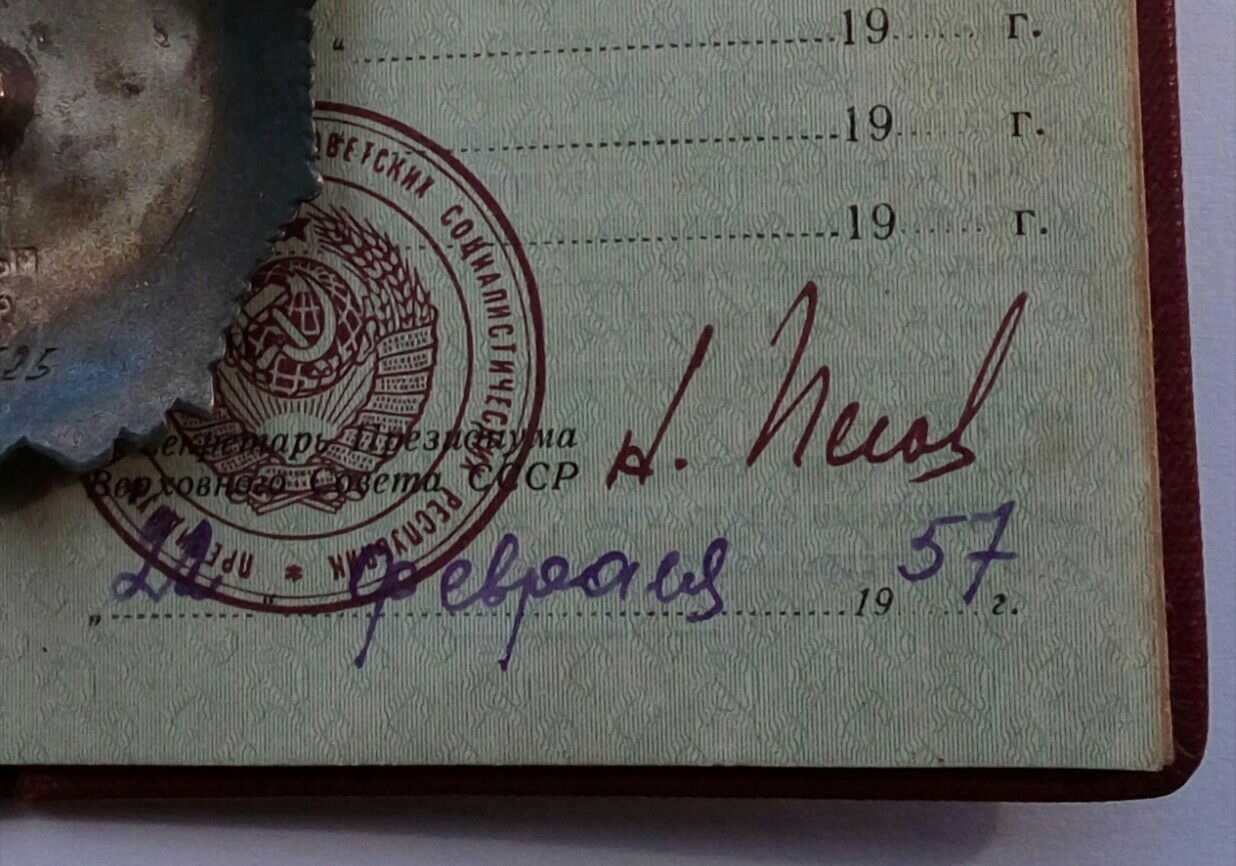 “ 19 г.
19 г.
19 г.
ОВЕТСКИХ СОЦИАЛИСТИЧЕСКИХ РЕСПУБЛИК * ПРЕЗИДИУМ
525
Секретарь Президиума
Верховного Совета СССР
Н. Пегов
„22“ февраля 1957 г.